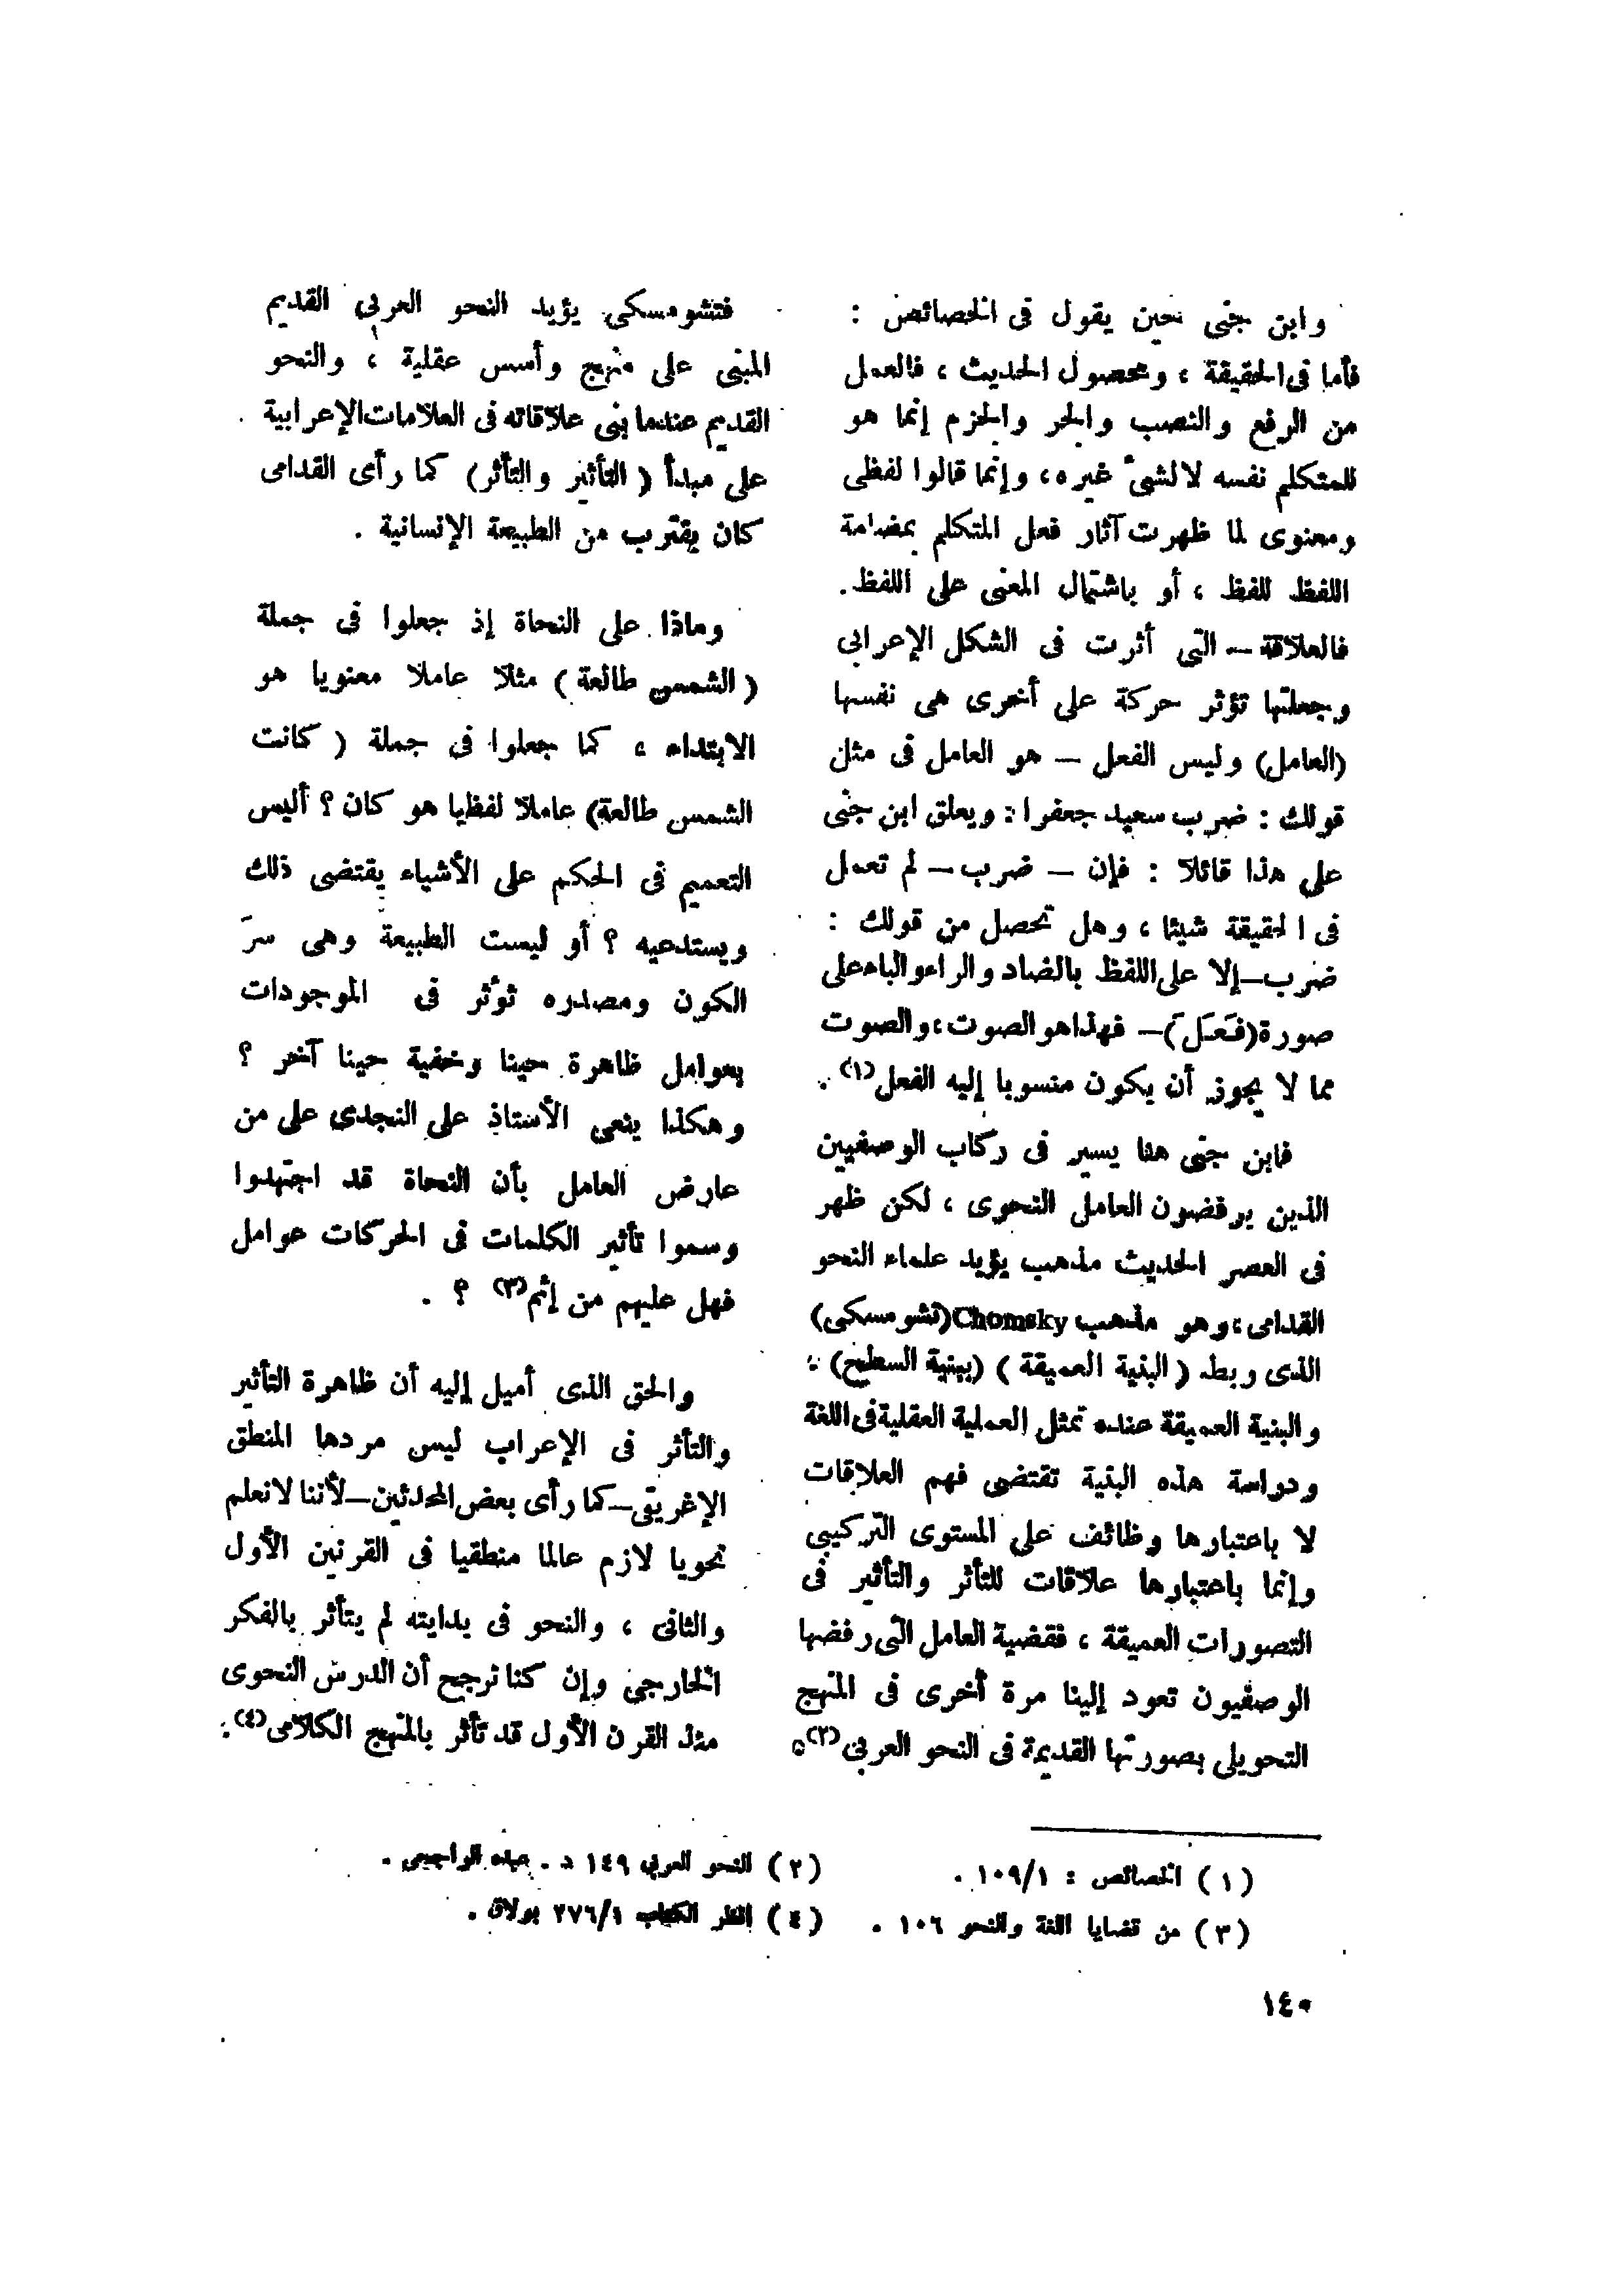 وابن جنى حين يقول فى الخصائص :
فأما فى الحقيقة ، ومحصول الحديث ، فالعمل
من الرفع والنصب والجر والجزم إنما هو
للمتكلم نفسه لا لشىء غيره ، وإنما قالوا لفظى
ومعنوى لما ظهرت آثار فعل المتكلم بمضامة
اللفظ للفظ ، أو باشتمال المعنى على اللفظ .
فالعلاقة – التى أثرت فى الشكل الإعرابى
وجعلتها تؤثر حركة على أخرى هى نفسها
(العامل) وليس الفعل – هو العامل فى مثل
قولك : ضرب سعيد جعفرا : ويعلق ابن جنى
على هذا قائلا : فإن – ضرب – لم تعمل
فى الحقيقة شيئا ، وهل تحصل من قولك :
ضرب – إلا على اللفظ بالضاد والراء والباء على
صورة (فَعَلَ) – فهذا هو الصوت ، والصوت
مما لا يجوز أن يكون منسوبا إليه الفعل (١) .
فابن جنى هنا يسير فى ركاب الوصفيين
الذين يرفضون العامل النحوى ، لكن ظهر
فى العصر الحديث مذهب يؤيد علماء النحو
القدامى ، وهو مذهب Chomsky (تشومسكى)
الذى ربط ( البنية العميقة ) (ببنية السطح) :
والبنية العميقة عنده تمثل العملية العقلية فى اللغة
ودراسة هذه البنية تقتضى فهم العلاقات
لا باعتبارها وظائف على المستوى التركيبى
وإنما باعتبارها علاقات للتأثر والتأثير فى
التصورات العميقة ، فقضية العامل التى رفضها
الوصفيون تعود إلينا مرة أخرى فى المنهج
التحويلى بصورتها القديمة فى النحو العربى (٢) .
فتشومسكى يؤيد النحو العربى القديم
المبنى على منهج وأسس عقلية ، والنحو
القديم عندما بنى علاقاته فى العلامات الإعرابية
على مبدأ ( التأثير والتأثر ) كما رأى القدامى
كان يقترب من الطبيعة الإنسانية .
وماذا على النحاة إذ جعلوا فى جملة
( الشمس طالعة ) مثلا عاملا معنويا هو
الابتداء ، كما جعلوا فى جملة ( كانت
الشمس طالعة) عاملا لفظيا هو كان ؟ أليس
التعميم فى الحكم على الأشياء يقتضى ذلك
ويستدعيه ؟ أو ليست الطبيعة وهى سرّ
الكون ومصدره تؤثر فى الموجودات
بعوامل ظاهرة حينا وخفية حينا آخر ؟
وهكذا ينعى الأستاذ على النجدى على من
عارض العامل بأن النحاة قد اجتهدوا
وسموا تأثير الكلمات فى الحركات عوامل
فهل عليهم من إثم (٣) ؟ .
والحق الذى أميل إليه أن ظاهرة التأثير
والتأثر فى الإعراب ليس مردها المنطق
الإغريقى – كما رأى بعض المحدثين – لأننا لا نعلم
نحويا لازم عالما منطقيا فى القرنين الأول
والثانى ، والنحو فى بدايته لم يتأثر بالفكر
الخارجى وإن كنا نرجح أن الدرس النحوى
منذ القرن الأول قد تأثر بالمنهج الكلامى (٤) .
(١) الخصائص : ١٠٩/١ .
(٢) النحو العربى ١٤٩ د . عبده الراجحى .
(٣) من قضايا اللغة والنحو ١٠٦ .
(٤) انظر الكتاب ٢٧٦/١ بولاق .
١٤٠